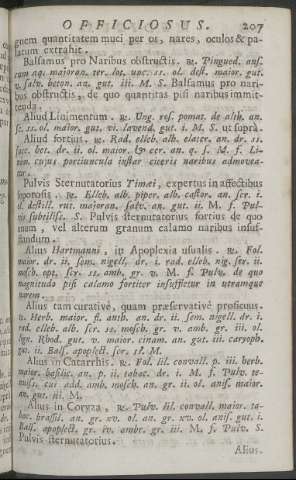 OFFICIOSUS. 207
gnem quantitatem muci per os, nares, oculos & pa-
latum extrahit.
Balsamus pro Naribus obstructis. ℞. Pingued. ans.
cum aq. majoran. ter. lot. unc. ss. ol. dest. maior. gut.
v. salv. beton. an. gut. iii. M. S. Balsamus pro nari-
bus obstructis, de quo quantitas pisi naribus immit-
tenda.
Aliud Linimentum. ℞. Ung. ros. pomat. de alth. an.
ss. ol. maior. gut. vi. lavend. gut. i. M. S. ut suprà.
Aliud fortius. ℞. Rad. elleb. alb. elater. an. dr. ss.
succ. bet. dr. ii. ol. maior. & cer. an. q. s. M. f. Li-
nim. cujus portiuncula instar ciceris naribus admovea-
tur.
Pulvis Sternutatorius Timæi, expertus in affectibus
soporosis. ℞. Elleb. alb. piper. alb. castor. an. scr. i.
ol. destill. rut. majoran. salv. an. gut. ii. M. f. Pul-
vis subtiliss. S. Pulvis sternutatorius fortius de quo
unam, vel alteram granum calamo naribus insuf-
flandum.
Alius Hartmanni, in Apoplexia usualis. ℞. Fol.
maior. dr. ii. sem. nigell. dr. i. rad. elleb. nig. scr. ii.
mosch. opt. scr. ss. amb. gr. v. M. f. Pulv. de quo
magnitudo pisi calamo fortiter insuffletur in utramque
narem.
Alius tam curativè, quam præservativè proficuus.
℞. Herb. maior. f. anth. an. dr. ii. sem. nigell. dr. i.
rad. elleb. alb. scr. ss. mosch. gr. v. amb. gr. iii. ol.
lign. Rhod. gut. v. maior. cinam. an. gut. iii. caryoph.
gut. ii. Bals. apoplect. scr. ss. M.
Alius in Catarrhis. ℞. Fol. lil. convall. p. iii. herb.
maior. basilic. an. p. ii. tabac. dr. i. M. f. Pulv. te-
nuiss. cui add. amb. mosch. an. gr. ii. ol. anis. maior.
an. gut. iii. M.
Alius in Coryza, ℞. Pulv. lil. convall. maior. ta-
bac. brasil. an. gr. xv. ol. an. gr. xv. ol. anis. gut. i.
Bals. apoplect. gr. iv. ambr. gr. iii. M. f. Pulv. S.
Pulvis sternutatorius.
Alius.